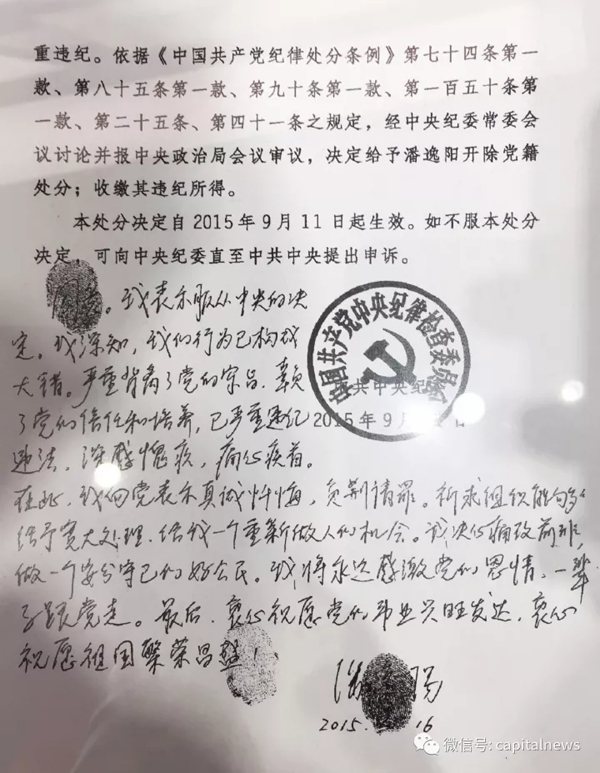 重违纪。依据《中国共产党纪律处分条例》第七十四条第一
款、第八十五条第一款、第九十条第一款、第一百五十条第
一款、第二十五条、第四十一条之规定，经中央纪委常委会
议讨论并报中央政治局会议审议，决定给予潘逸阳开除党籍
处分；收缴其违纪所得。
本处分决定自2015年9月11日起生效。如不服本处分
决定，可向中央纪委直至中共中央提出申诉。
我表示服从中央的决
定。我深知，我的行为已构成
大错。严重背离了党的宗旨、辜负
了党的信任和培养，已严重违纪
违法，深感愧疚，痛心疾首。
中国共产党中央纪律检查委员会
共中央纪
2015年9月
在此，我向党表示真诚忏悔，负荆请罪。祈求组织能够
给予宽大处理，给我一个重新做人的机会。我决心痛改前非，
做一个安分守己的好公民。我将永远感激党的恩情，一辈
子跟党走。最后，衷心祝愿党的事业兴旺发达，衷心
祝愿祖国繁荣昌盛！
2015. 16
微信号: capitalnews